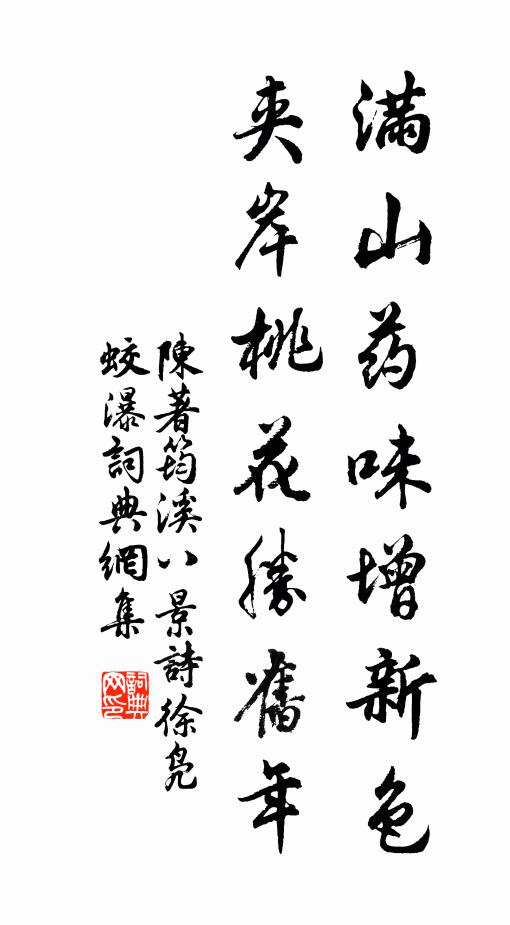 满山药味增新色
夹岸桃花勝舊年
陳著筠溪八景詩徐凫
蛟瀑詞典網集
詞典网印